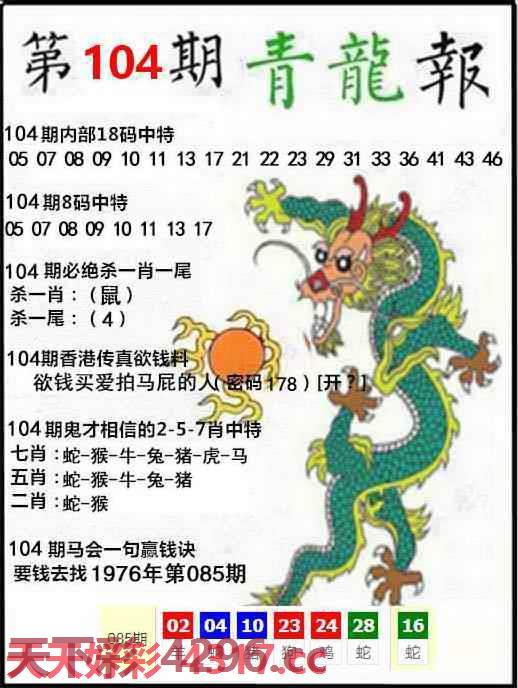 第104期青龍報
104期内部18码中特
05 07 08 09 10 11 13 17 21 22 23 29 31 33 36 41 43 46
104期8码中特
05 07 08 09 10 11 13 17
104期必绝杀一肖一尾
杀一肖：（鼠）
杀一尾：（4）
104期香港传真欲钱料
欲钱买爱拍马屁的人(密码178)[开？]
104期鬼才相信的2-5-7肖中特
七肖：蛇-猴-牛-兔-猪-虎-马
五肖：蛇-猴-牛-兔-猪
二肖：蛇-猴
104期马会一句赢钱诀
要钱去找1976年第085期
085期 02 04 10 23 24 28 16
羊 猪 狗 鸡 蛇 蛇
天下深彩44296.cc